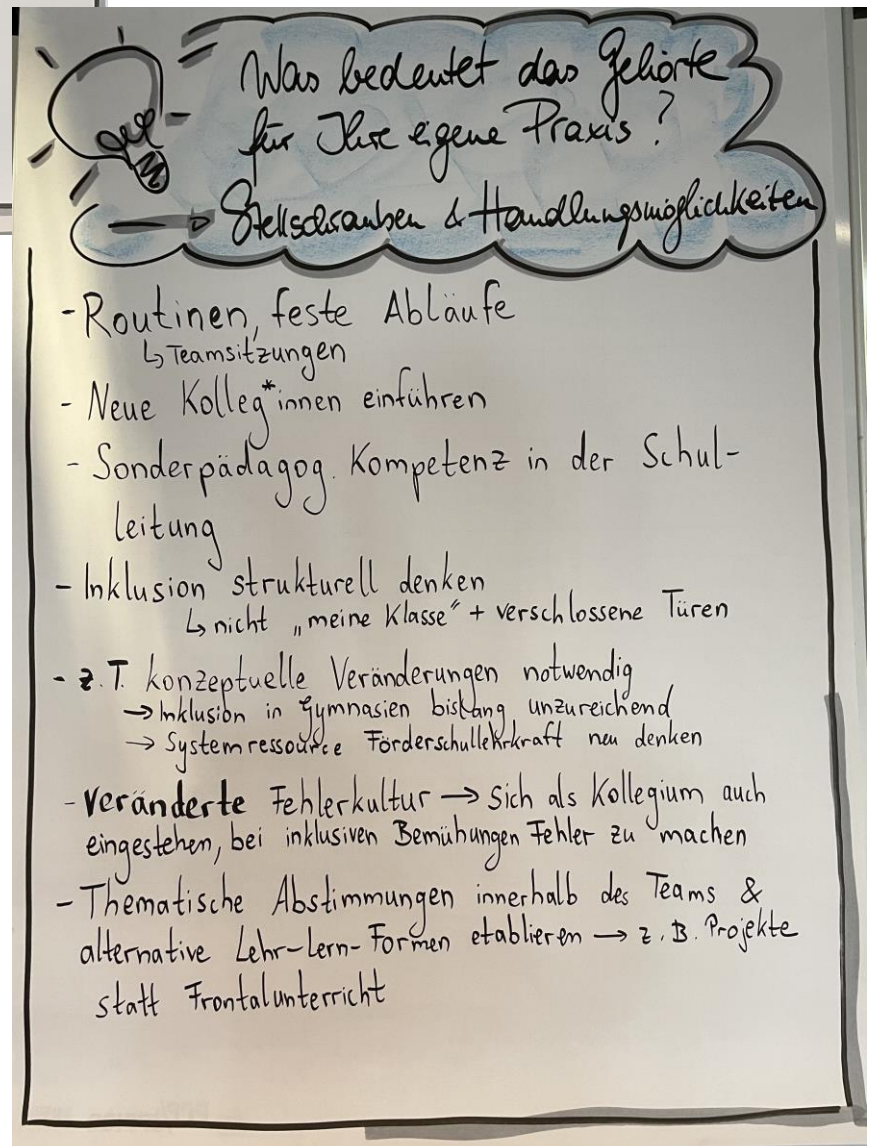 Was bedeutet das Gehörte
für Ihre eigene Praxis?
→ Stellschrauben & Handlungsmöglichkeiten
- Routinen, feste Abläufe
↳ Teamsitzungen
- Neue Kolleg*innen einführen
- Sonderpädagog. Kompetenz in der Schul-
leitung
- Inklusion strukturell denken
↳ nicht „meine Klasse" + verschlossene Türen
- z.T. konzeptuelle Veränderungen notwendig
→ Inklusion in Gymnasien bislang unzureichend
→ Systemressource Förderschullehrkraft neu denken
- Veränderte Fehlerkultur → Sich als Kollegium auch
eingestehen, bei inklusiven Bemühungen Fehler zu machen
- Thematische Abstimmungen innerhalb des Teams &
alternative Lehr-Lern-Formen etablieren → z.B. Projekte
statt Frontalunterricht